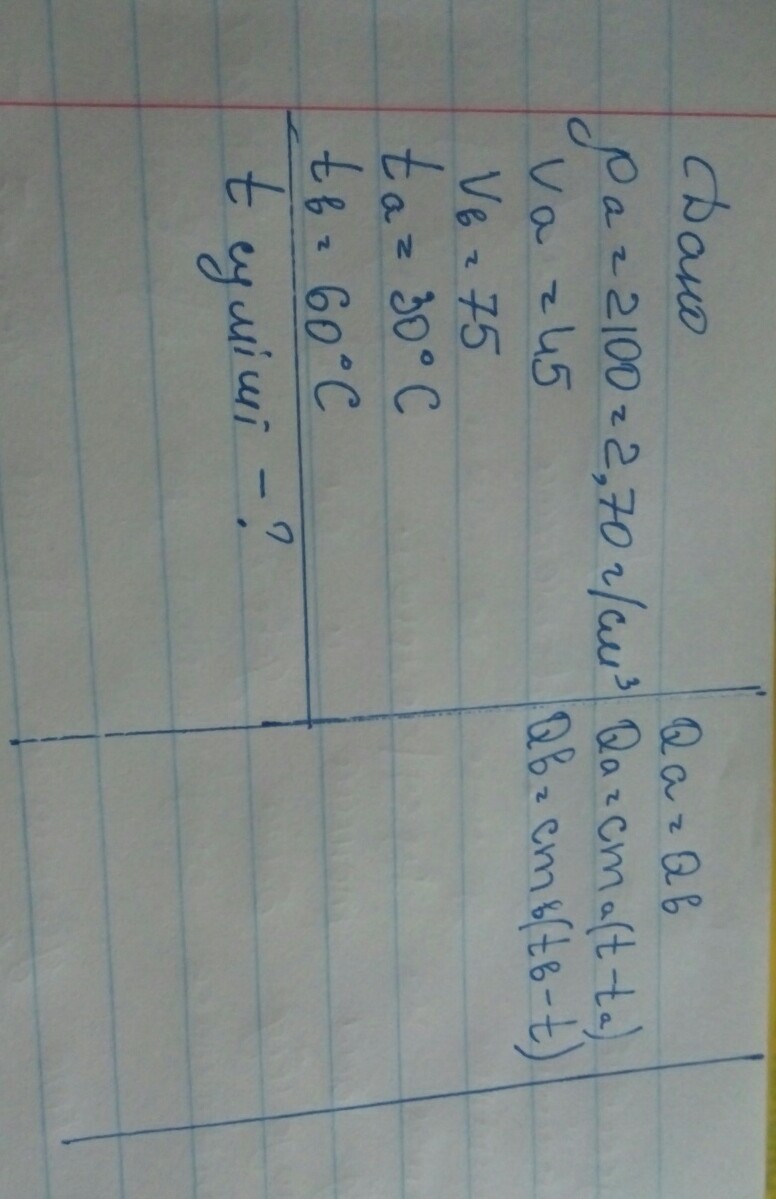 Дано
ρa = 2100 = 2,70 г/см³
Va = 45
Vв = 75
ta = 30°C
tв = 60°C
t суміші - ?
Qa = Qв
Qa = cma(t-ta)
Qв = cmв(tв-t)